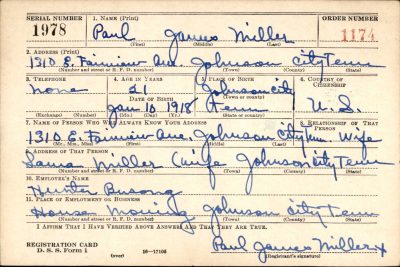 SERIAL NUMBER 1. NAME (Print) ORDER NUMBER
1978 Paul James Miller 1174
(First) (Middle) (Last)
2. ADDRESS (Print)
1310 E. Fairview Ave. Johnson City Tenn
(Number and street or R. F. D. number) (Town) (County) (State)
3. TELEPHONE 4. AGE IN YEARS 5. PLACE OF BIRTH 6. COUNTRY OF CITIZENSHIP
none 21 Johnson City
DATE OF BIRTH (Town or county)
Jan 10 1918 Tenn U.S.
(Exchange) (Number) (Mo.) (Day) (Yr.) (State or country)
7. NAME OF PERSON WHO WILL ALWAYS KNOW YOUR ADDRESS 8. RELATIONSHIP OF THAT PERSON
1310 E. Fairview Ave. Johnson City Wife
(Mr., Mrs., Miss) (First) (Middle) (Last)
9. ADDRESS OF THAT PERSON
Miller (wife Johnson City Tenn
(Number and street or R. F. D. number) (Town) (County) (State)
10. EMPLOYER'S NAME
Hunter
11. PLACE OF EMPLOYMENT OR BUSINESS
House Moving Johnson City Tenn
(Number and street or R. F. D. number) (Town) (County) (State)
I AFFIRM THAT I HAVE VERIFIED ABOVE ANSWERS AND THAT THEY ARE TRUE.
REGISTRATION CARD
D. S. S. Form 1 (over) 16-17105 Paul James Miller x
(Registrant's signature)